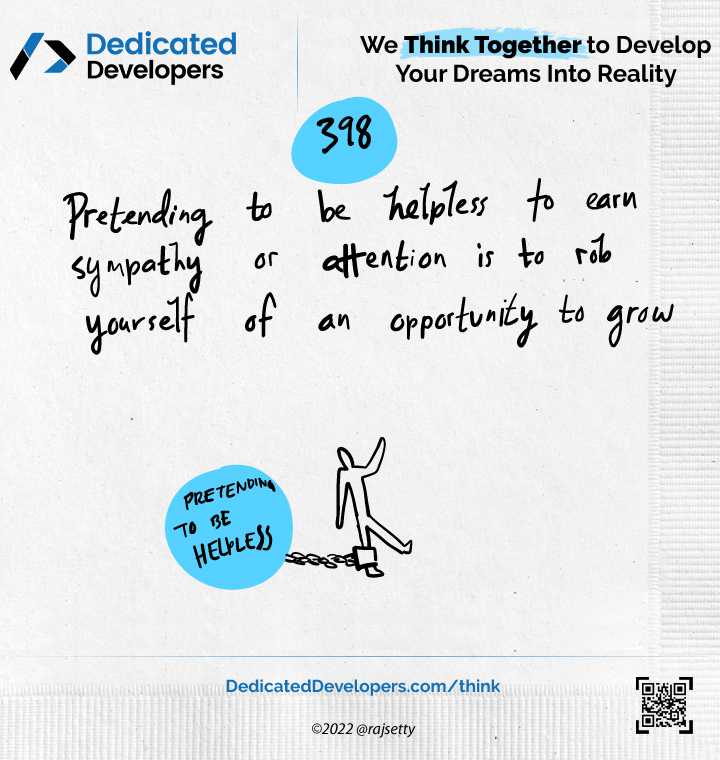 Dedicated
Developers
We Think Together to Develop
Your Dreams Into Reality
398
Pretending to be helpless to earn
sympathy or attention is to rob
yourself of an opportunity to grow
PRETENDING
TO BE
HELPLESS
DedicatedDevelopers.com/think
©2022 @rajsetty